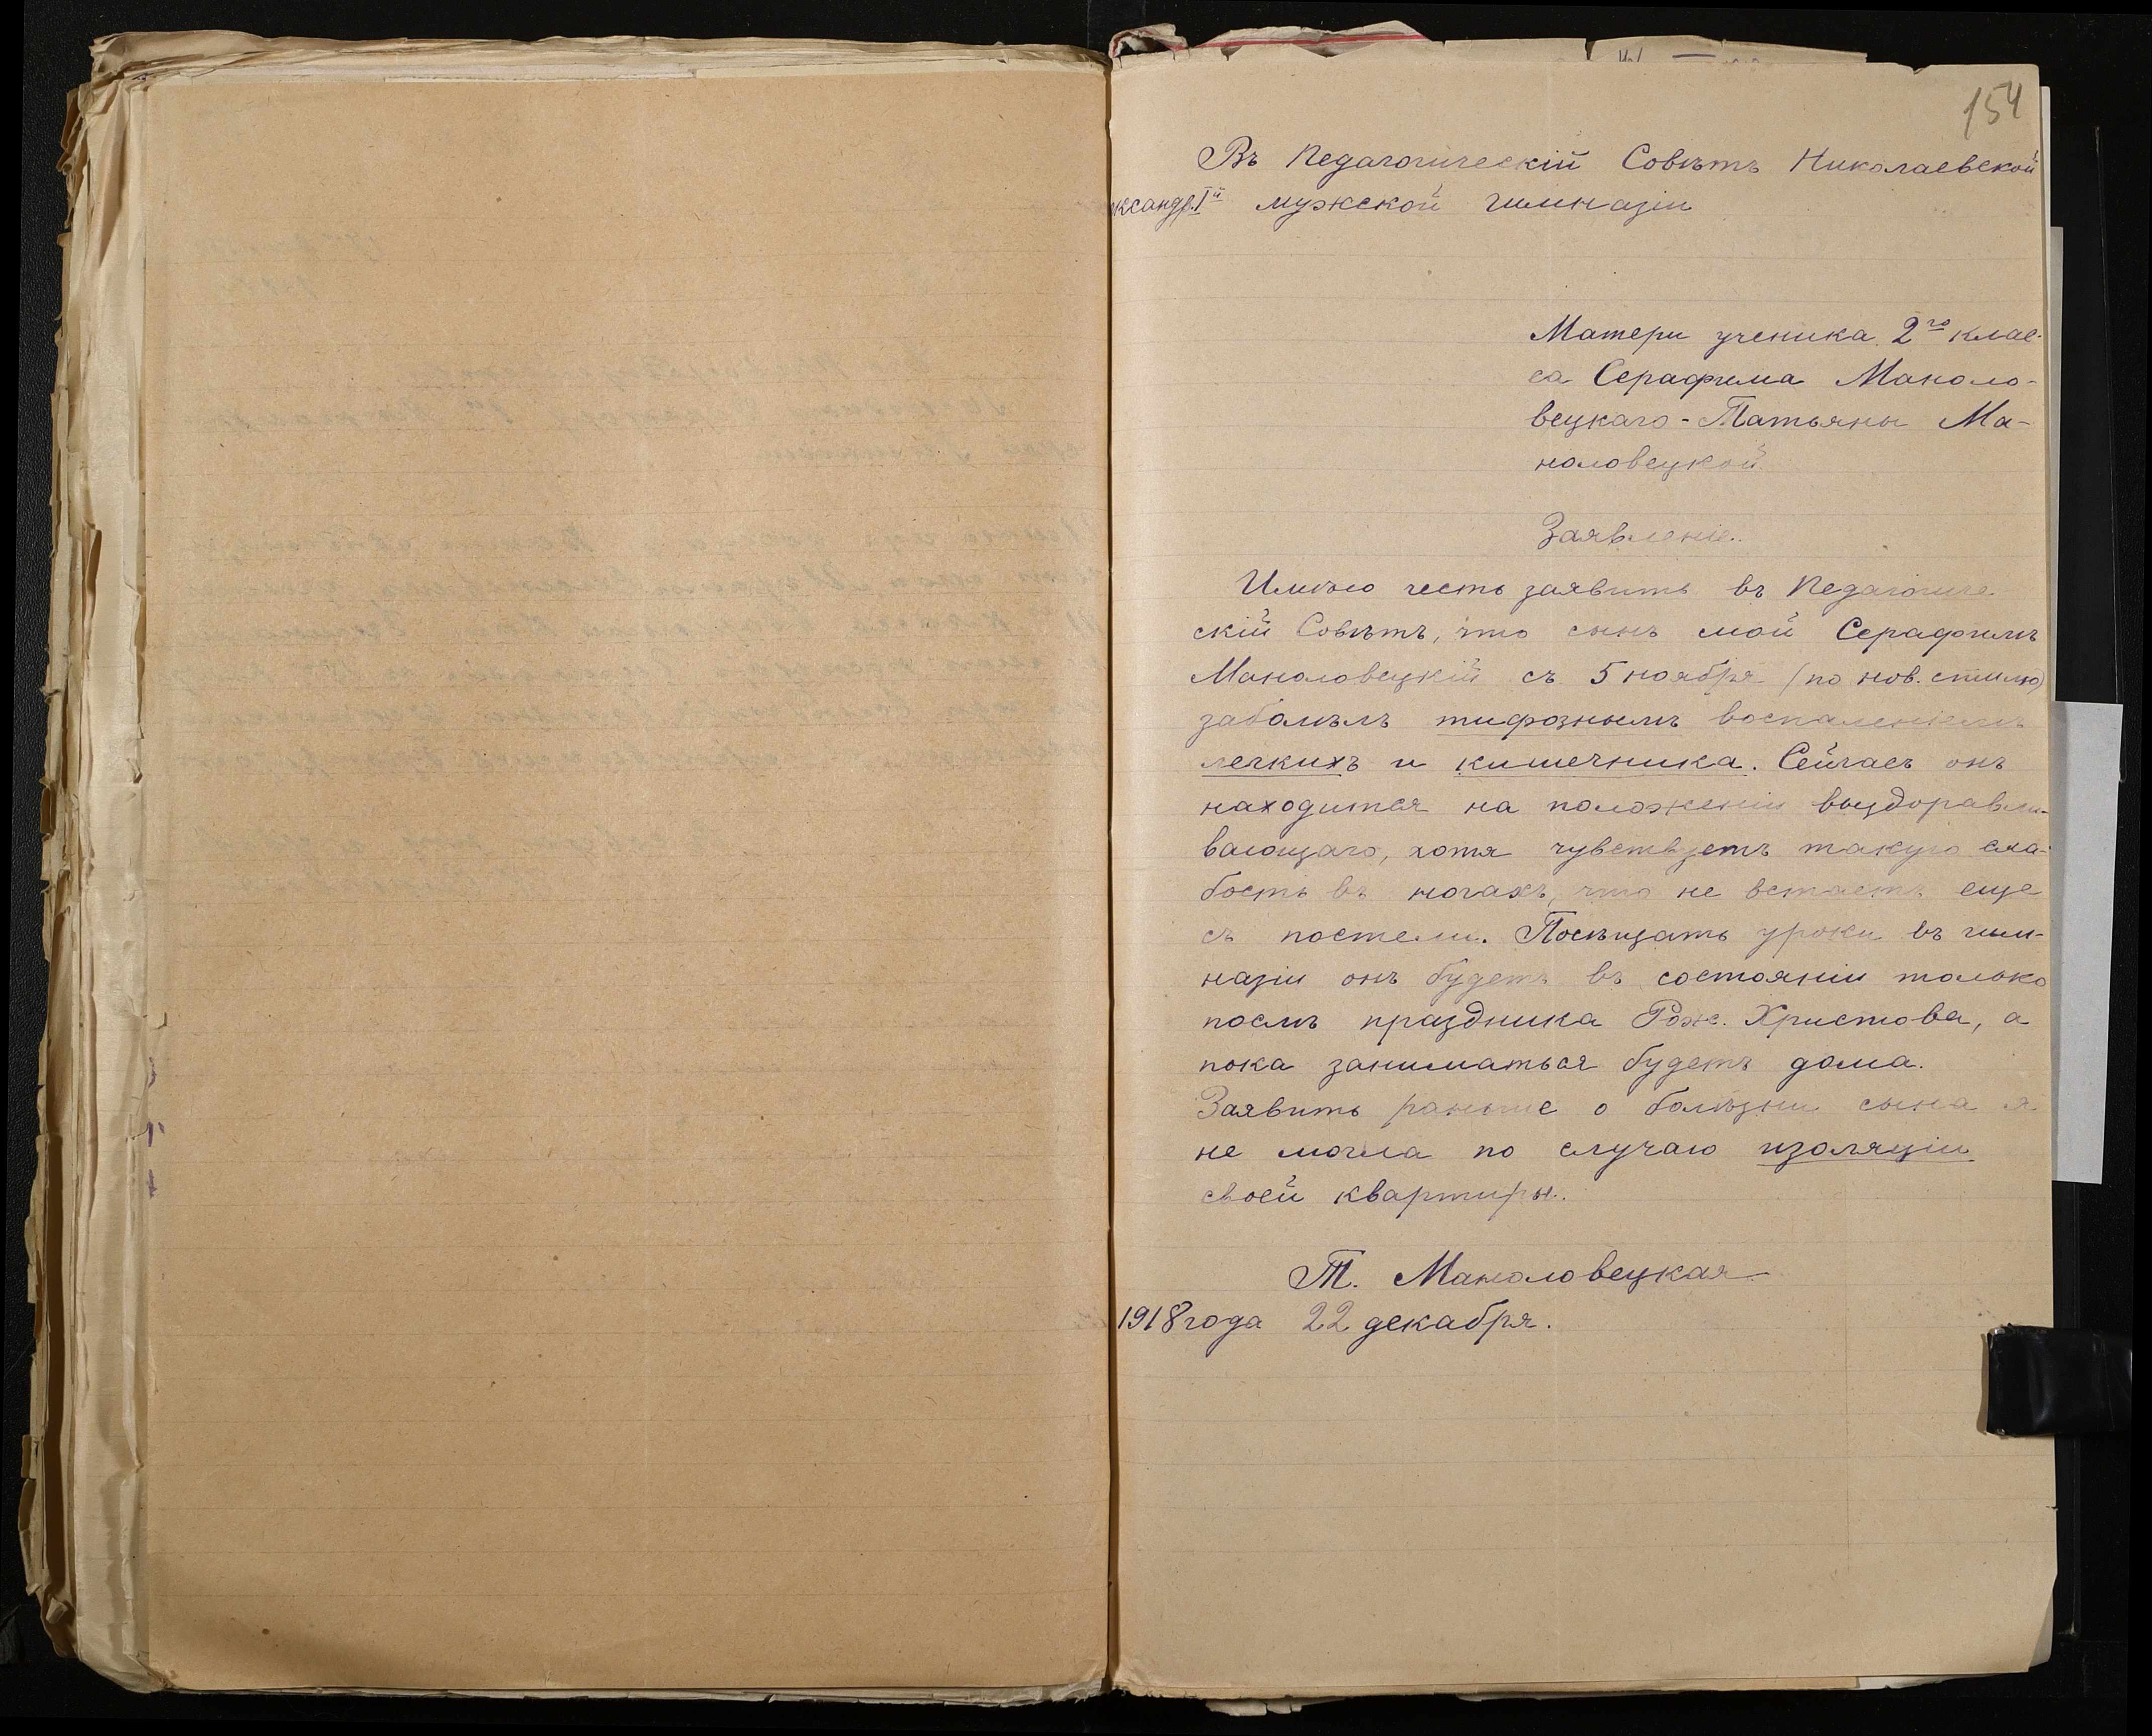 154
Въ Педагогическій Совѣтъ Николаевской
ксандр. Iй мужской гимназіи
Матери ученика 2го клас-
са Серафима Маноло-
вецкаго - Татьяны Ма-
ноловецкой
Заявленіе.
Имѣю честь заявить въ Педагогиче
скій Совѣтъ, что сынъ мой Серафимъ
Маноловецкій съ 5 ноября (по нов. стилю)
заболѣлъ тифознымъ воспаленіемъ
легкихъ и кишечника. Сейчасъ онъ
находится на положеніи выздоравли-
вающаго, хотя чувствуетъ такую сла-
бость въ ногахъ, что не встаетъ еще
съ постели. Посѣщать уроки въ гим-
назіи онъ будетъ въ состояніи только
послѣ праздника Рож. Христова, а
пока заниматься будетъ дома.
Заявить раньше о болѣзни сына я
не могла по случаю изоляціи
своей квартиры.
Т. Маноловецкая
1918 года 22 декабря.